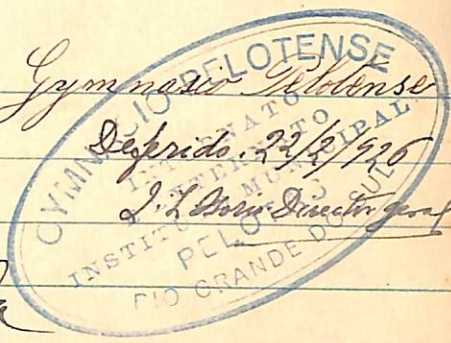 Gymnasio Pelotense
Deferido. 22/2/926
Director geral
GYMNASIO PELOTENSE
INTERNATO
EXTERNATO
INSTITUTO MUNICIPAL
PELOTAS
RIO GRANDE DO SUL